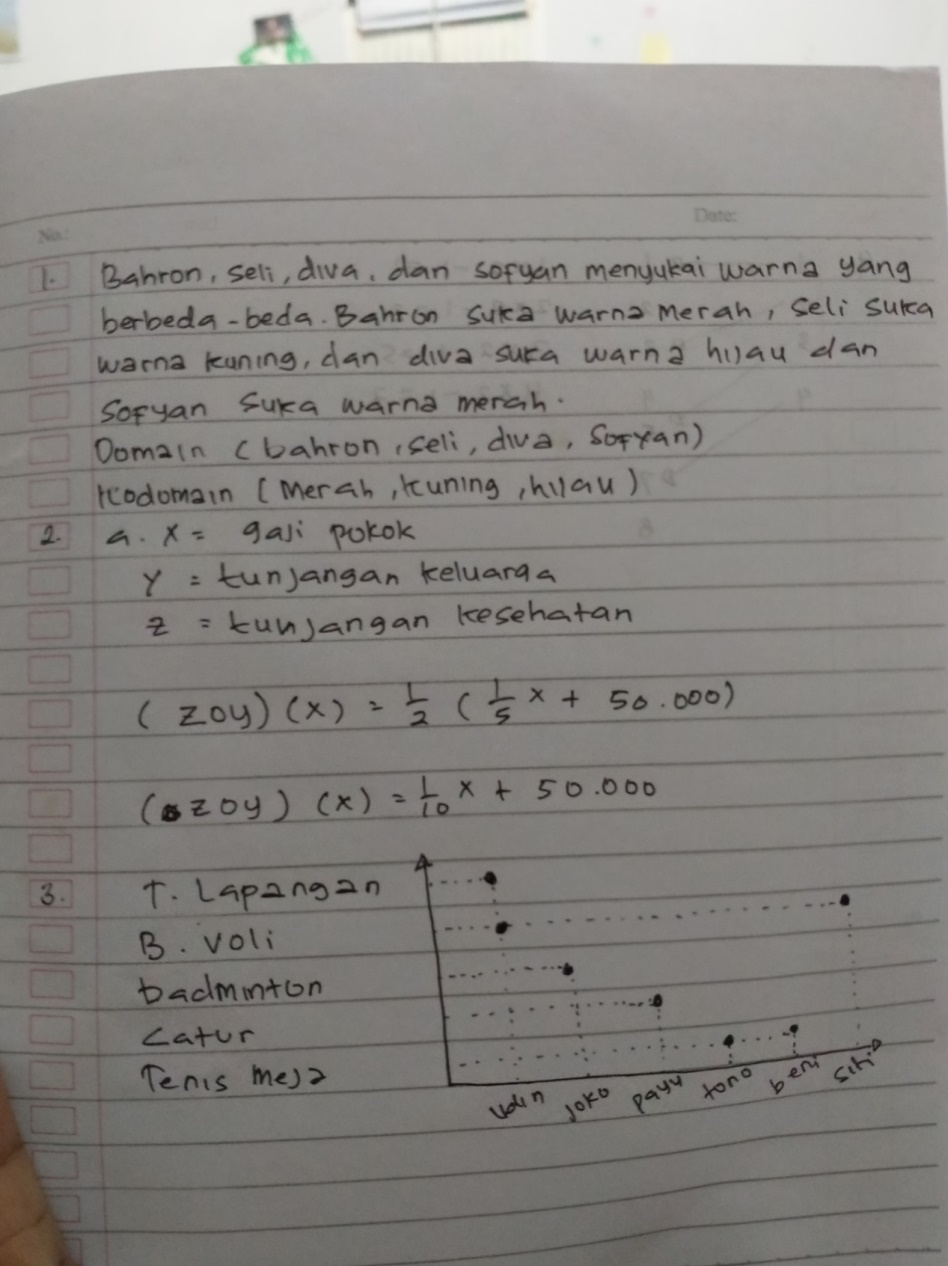 No.:
Date:
1. Bahron, seli, diva, dan sofyan menyukai warna yang
berbeda-beda. Bahron suka warna merah, seli suka
warna kuning, dan diva suka warna hijau dan
Sofyan suka warna merah.
Domain (bahron, seli, diva, Sofyan)
Kodomain (Merah, kuning, hijau)
2. a. x = gaji pokok
Y = tunjangan keluarga
z = tunjangan kesehatan
(zoy)(x) = 1/2 (1/5 x + 50.000)
(zoy) (x) = 1/10 x + 50.000
3. T. Lapangan
B. voli
badminton
Catur
Tenis meja
udin joko payu tono beni siti